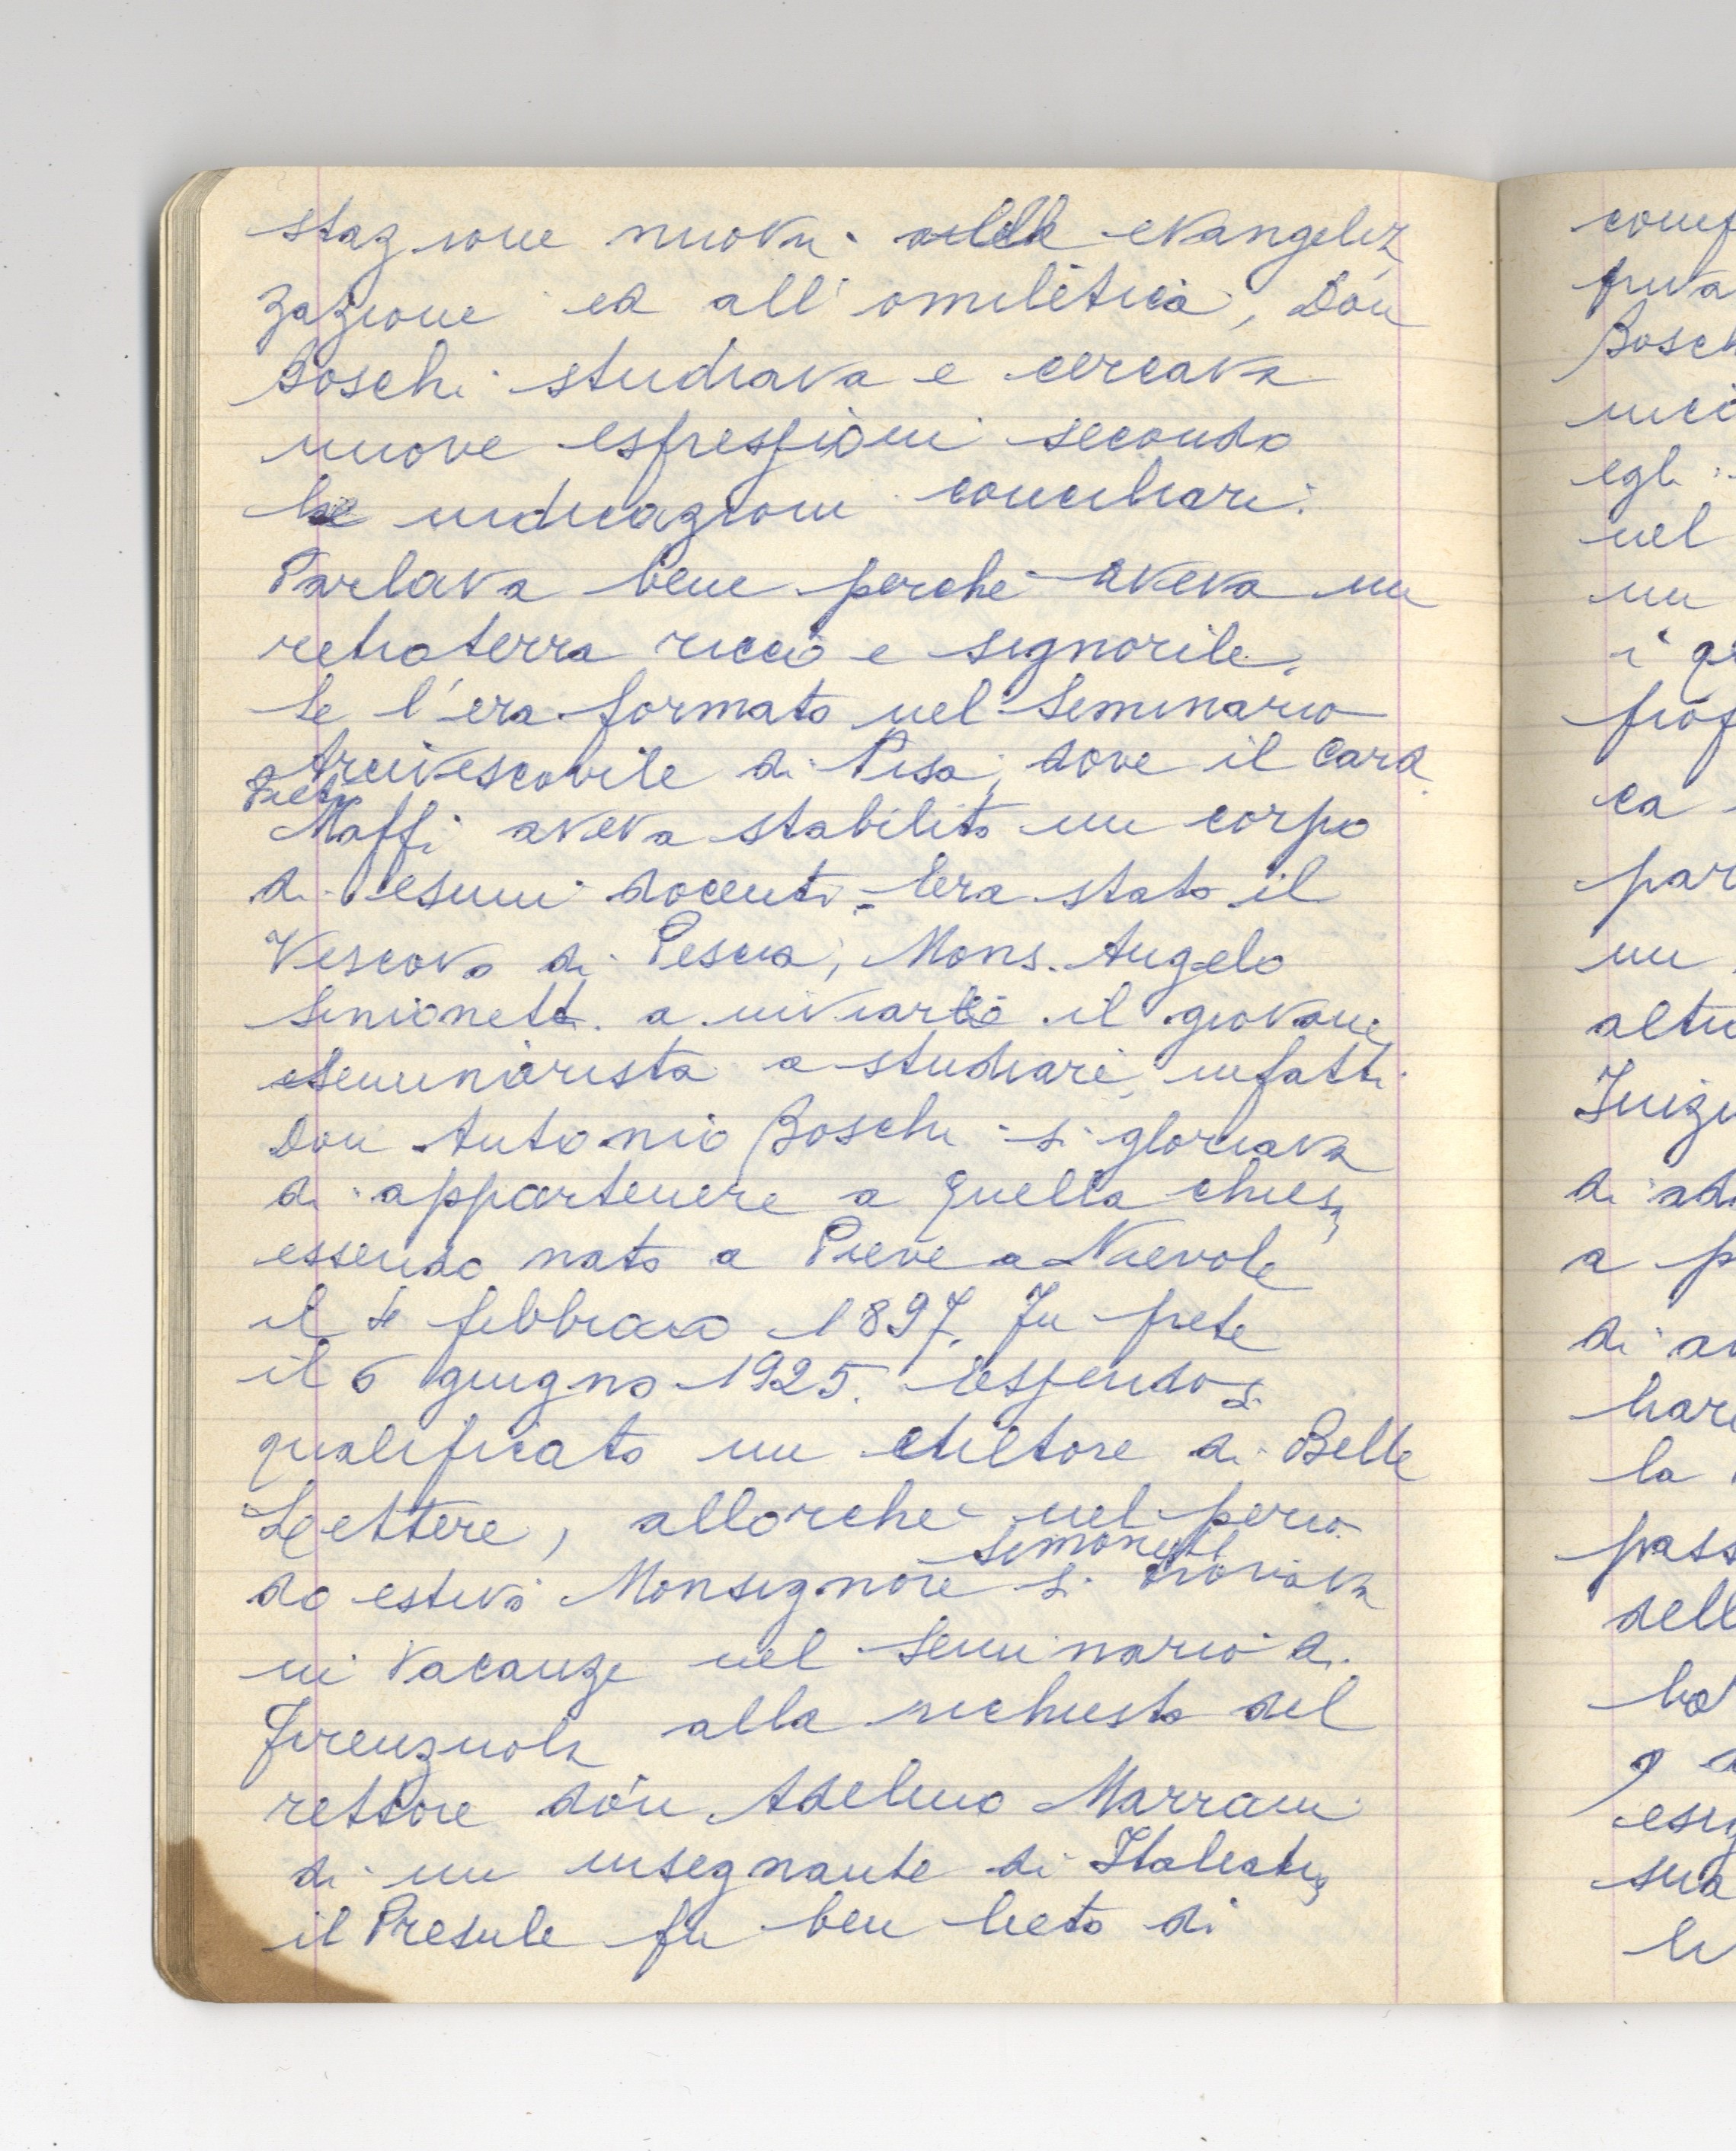 stazione nuova alla evangeliz
zazione ed all'omiletica, Don
Boschi studiava e cercava
nuove espressioni secondo
le indicazioni conciliari.
Parlava bene perché aveva un
retroterra ricco e signorile.
Se l'era formato nel Seminario
Arcivescovile di Pisa, dove il Card.
Pietro
Maffi aveva stabilito un corpo
di docenti. C'era stato il
Vescovo di Pescia, Mons. Angelo
Simionetti a inviarlo il giovane
seminarista a studiare, infatti
Don Antonio Boschi si gloriava
di appartenere a quella chiesa
essendo nato a Pieve a Nievole
il 4 febbraio 1897. Fu prete
il 6 giugno 1925. Essendosi
qualificato un cultore di Belle
Lettere, allorché nel perio
Simonetti
do estivo Monsignore si trovava
in vacanze nel Seminario di
Firenzuola alla richiesta del
rettore don Adelmo Marrani
di un insegnante di Italiano
il Presule fu ben lieto di
comp
priva
Bosch
egli
nel
un
par
un
altri
Inizi
di ad
a p
di
la
pass
dell
sua